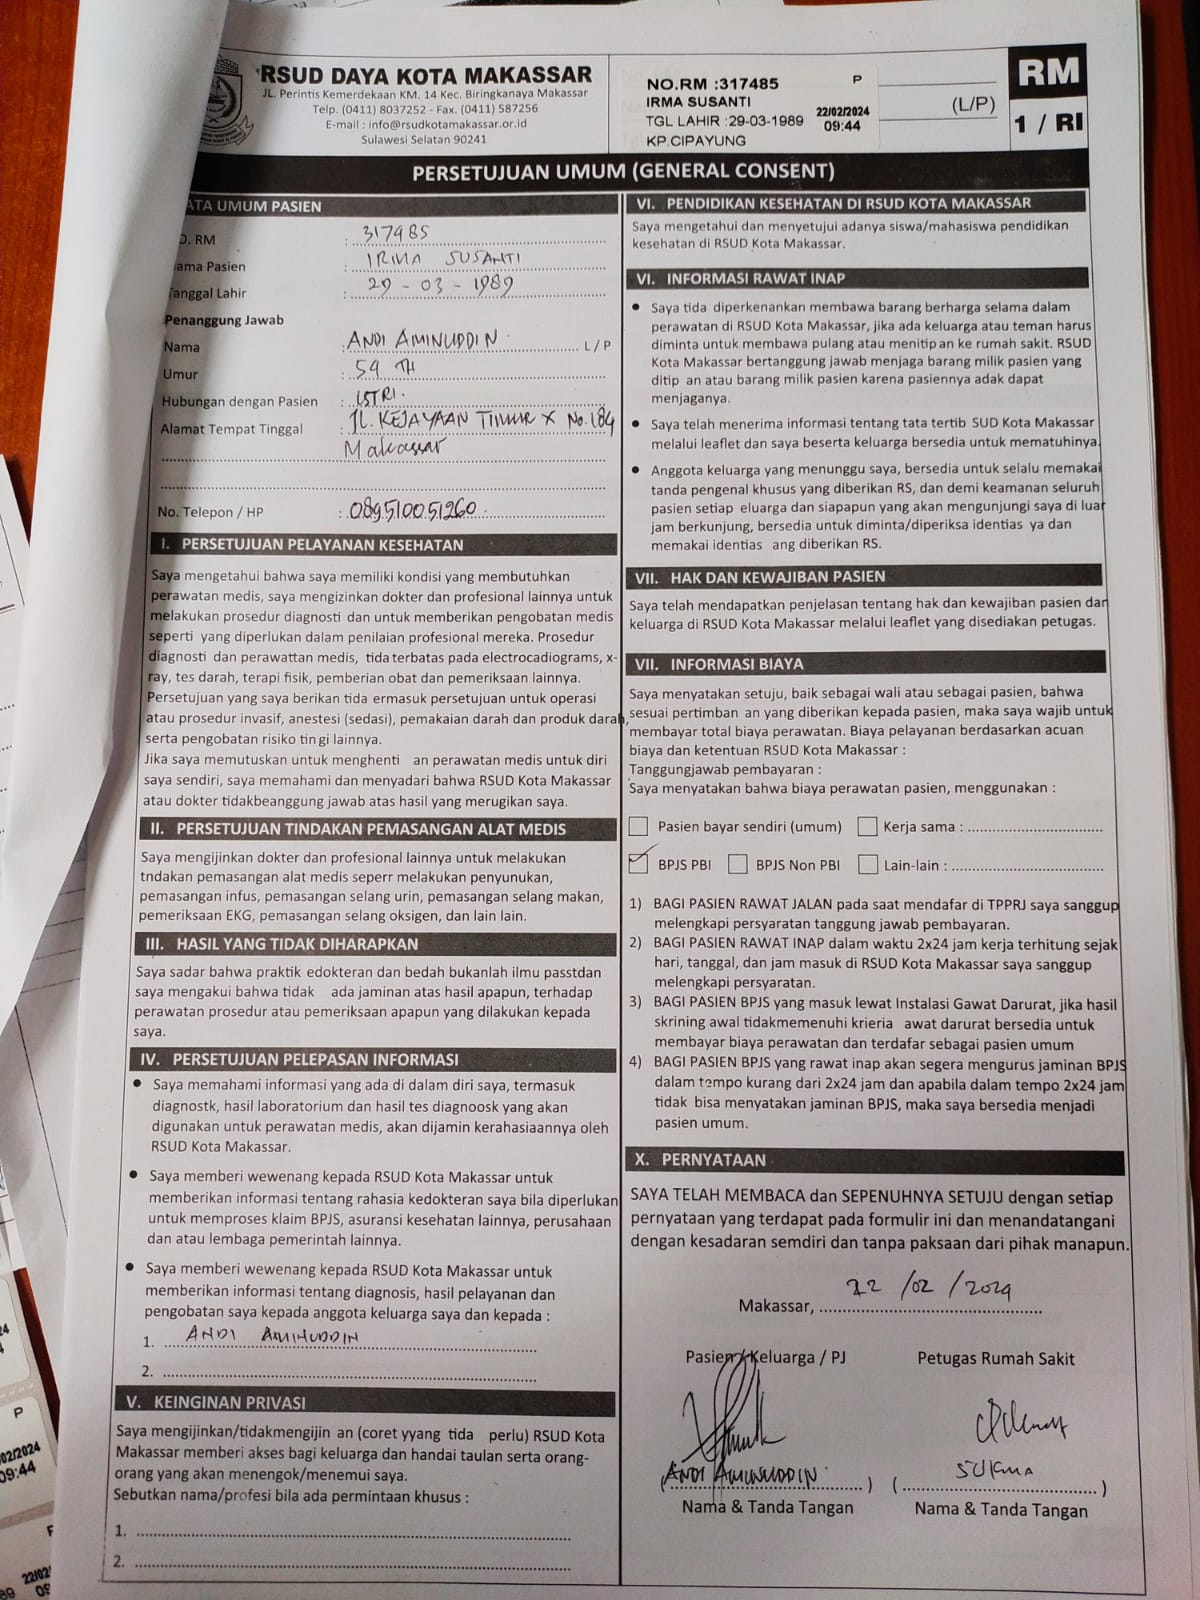 RSUD DAYA KOTA MAKASSAR
JL. Perintis Kemerdekaan KM. 14 Kec. Biringkanaya Makassar
Telp. (0411) 8037252 - Fax. (0411) 587256
E-mail : info@rsudkotamakassar.or.id
Sulawesi Selatan 90241
NO.RM :317485 P
IRMA SUSANTI
TGL LAHIR :29-03-1989
KP.CIPAYUNG
22/02/2024
09:44
(L/P)
RM
1 / RI
PERSETUJUAN UMUM (GENERAL CONSENT)
ATA UMUM PASIEN
O. RM : 317485
ama Pasien : IRMA SUSANTI
Tanggal Lahir : 29 - 03 - 1989
Penanggung Jawab
Nama : ANDI AMINUDDIN L / P
Umur : 59 TH
Hubungan dengan Pasien : ISTRI.
Alamat Tempat Tinggal : JL. KEJAYAAN TIMUR X No. 184
Makassar
No. Telepon / HP : 089510051260
I. PERSETUJUAN PELAYANAN KESEHATAN
Saya mengetahui bahwa saya memiliki kondisi yang membutuhkan
perawatan medis, saya mengizinkan dokter dan profesional lainnya untuk
melakukan prosedur diagnosti dan untuk memberikan pengobatan medis
seperti yang diperlukan dalam penilaian profesional mereka. Prosedur
diagnosti dan perawattan medis, tida terbatas pada electrocadiograms, x-
ray, tes darah, terapi fisik, pemberian obat dan pemeriksaan lainnya.
Persetujuan yang saya berikan tida ermasuk persetujuan untuk operasi
atau prosedur invasif, anestesi (sedasi), pemakaian darah dan produk darah,
serta pengobatan risiko tin gi lainnya.
Jika saya memutuskan untuk menghenti an perawatan medis untuk diri
saya sendiri, saya memahami dan menyadari bahwa RSUD Kota Makassar
atau dokter tidakbeanggung jawab atas hasil yang merugikan saya.
II. PERSETUJUAN TINDAKAN PEMASANGAN ALAT MEDIS
Saya mengijinkan dokter dan profesional lainnya untuk melakukan
tndakan pemasangan alat medis seperr melakukan penyunukan,
pemasangan infus, pemasangan selang urin, pemasangan selang makan,
pemeriksaan EKG, pemasangan selang oksigen, dan lain lain.
III. HASIL YANG TIDAK DIHARAPKAN
Saya sadar bahwa praktik edokteran dan bedah bukanlah ilmu passtdan
saya mengakui bahwa tidak ada jaminan atas hasil apapun, terhadap
perawatan prosedur atau pemeriksaan apapun yang dilakukan kepada
saya.
IV. PERSETUJUAN PELEPASAN INFORMASI
● Saya memahami informasi yang ada di dalam diri saya, termasuk
diagnostk, hasil laboratorium dan hasil tes diagnoosk yang akan
digunakan untuk perawatan medis, akan dijamin kerahasiaannya oleh
RSUD Kota Makassar.
● Saya memberi wewenang kepada RSUD Kota Makassar untuk
memberikan informasi tentang rahasia kedokteran saya bila diperlukan
untuk memproses klaim BPJS, asuransi kesehatan lainnya, perusahaan
dan atau lembaga pemerintah lainnya.
● Saya memberi wewenang kepada RSUD Kota Makassar untuk
memberikan informasi tentang diagnosis, hasil pelayanan dan
pengobatan saya kepada anggota keluarga saya dan kepada :
1. ANDI AMINUDDIN
2.
V. KEINGINAN PRIVASI
Saya mengijinkan/tidakmengijin an (coret yyang tida perlu) RSUD Kota
Makassar memberi akses bagi keluarga dan handai taulan serta orang-
orang yang akan menengok/menemui saya.
Sebutkan nama/profesi bila ada permintaan khusus :
1.
2.
VI. PENDIDIKAN KESEHATAN DI RSUD KOTA MAKASSAR
Saya mengetahui dan menyetujui adanya siswa/mahasiswa pendidikan
kesehatan di RSUD Kota Makassar.
VI. INFORMASI RAWAT INAP
● Saya tida diperkenankan membawa barang berharga selama dalam
perawatan di RSUD Kota Makassar, jika ada keluarga atau teman harus
diminta untuk membawa pulang atau menitipan ke rumah sakit. RSUD
Kota Makassar bertanggung jawab menjaga barang milik pasien yang
ditip an atau barang milik pasien karena pasiennya adak dapat
menjaganya.
● Saya telah menerima informasi tentang tata tertib SUD Kota Makassar
melalui leaflet dan saya beserta keluarga bersedia untuk mematuhinya.
● Anggota keluarga yang menunggu saya, bersedia untuk selalu memakai
tanda pengenal khusus yang diberikan RS, dan demi keamanan seluruh
pasien setiap eluarga dan siapapun yang akan mengunjungi saya di luar
jam berkunjung, bersedia untuk diminta/diperiksa identias ya dan
memakai identias ang diberikan RS.
VII. HAK DAN KEWAJIBAN PASIEN
Saya telah mendapatkan penjelasan tentang hak dan kewajiban pasien dan
keluarga di RSUD Kota Makassar melalui leaflet yang disediakan petugas.
VII. INFORMASI BIAYA
Saya menyatakan setuju, baik sebagai wali atau sebagai pasien, bahwa
sesuai pertimban an yang diberikan kepada pasien, maka saya wajib untuk
membayar total biaya perawatan. Biaya pelayanan berdasarkan acuan
biaya dan ketentuan RSUD Kota Makassar :
Tanggungjawab pembayaran :
Saya menyatakan bahwa biaya perawatan pasien, menggunakan :
Pasien bayar sendiri (umum) Kerja sama :
BPJS PBI BPJS Non PBI Lain-lain :
1) BAGI PASIEN RAWAT JALAN pada saat mendafar di TPPRJ saya sanggup
melengkapi persyaratan tanggung jawab pembayaran.
2) BAGI PASIEN RAWAT INAP dalam waktu 2x24 jam kerja terhitung sejak
hari, tanggal, dan jam masuk di RSUD Kota Makassar saya sanggup
melengkapi persyaratan.
3) BAGI PASIEN BPJS yang masuk lewat Instalasi Gawat Darurat, jika hasil
skrining awal tidakmemenuhi krieria awat darurat bersedia untuk
membayar biaya perawatan dan terdafar sebagai pasien umum
4) BAGI PASIEN BPJS yang rawat inap akan segera mengurus jaminan BPJS
dalam tempo kurang dari 2x24 jam dan apabila dalam tempo 2x24 jam
tidak bisa menyatakan jaminan BPJS, maka saya bersedia menjadi
pasien umum.
X. PERNYATAAN
SAYA TELAH MEMBACA dan SEPENUHNYA SETUJU dengan setiap
pernyataan yang terdapat pada formulir ini dan menandatangani
dengan kesadaran semdiri dan tanpa paksaan dari pihak manapun.
Makassar, 22 / 02 / 2024
Pasien / Keluarga / PJ Petugas Rumah Sakit
(ANDI AMINUDDIN) (SUKMA)
Nama & Tanda Tangan Nama & Tanda Tangan
P
02/2024
09:44